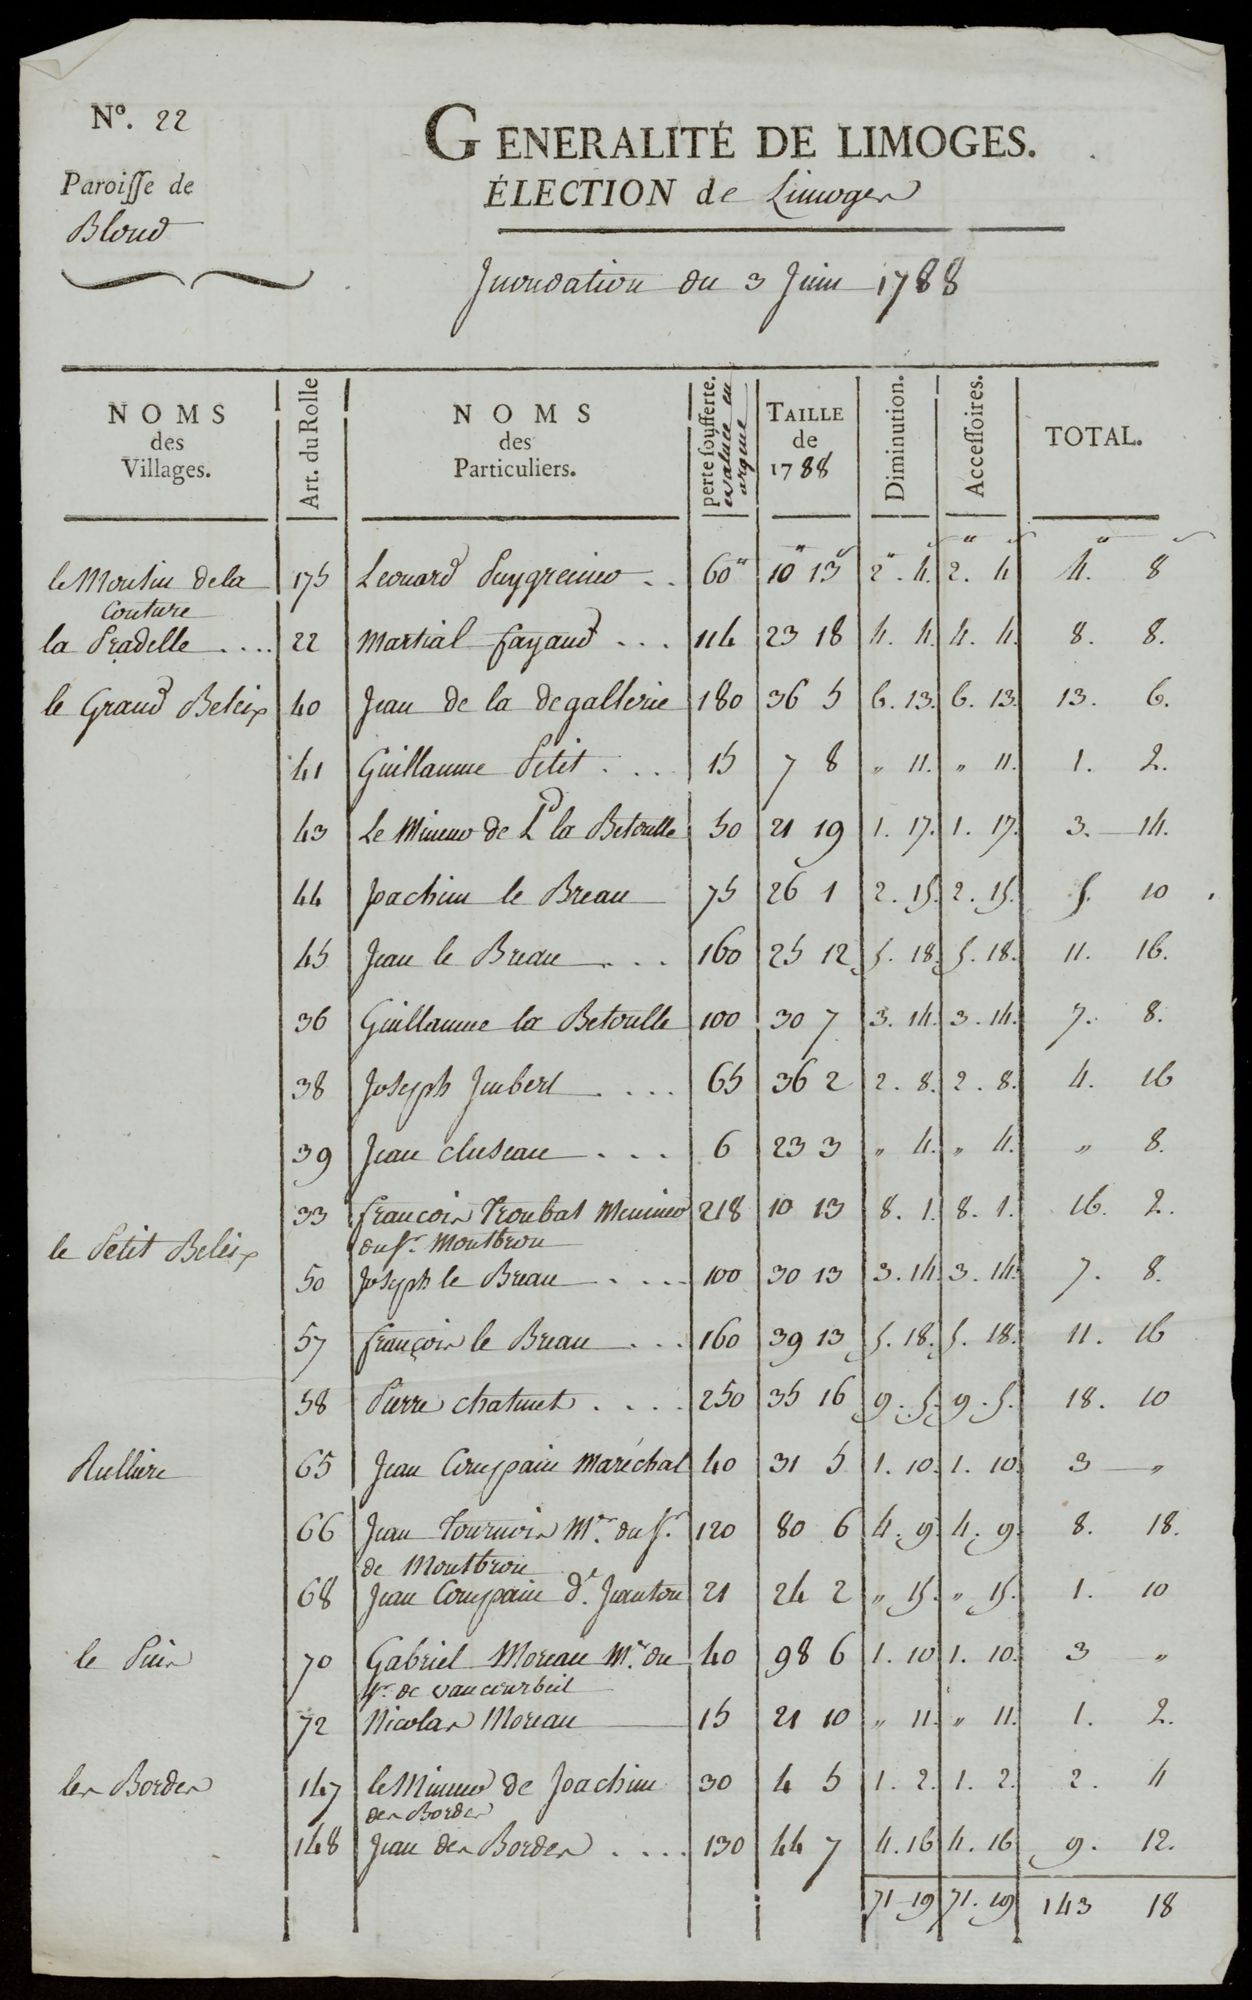 N°. 22
GENERALITÉ DE LIMOGES.
Paroisse de
Blond
ÉLECTION de Limoges
Inondation du 3 Juin 1788
NOMS des Villages. Art. du Rolle NOMS des Particuliers. perte soufferte. evaluée en argent TAILLE de 1788 Diminution. Accessoires. TOTAL.
le Moulin de la 175 Leonard Puygrenier .. 60" 10" 13 2". 4. 2. 4 4. 8
Couture
la Pradelle .... 22 Martial fayaud ... 114 23 18 4. 4. 4. 4. 8. 8.
le Grand Beleix 40 Jean de la degallerie 180 36 5 6. 13. 6. 13. 13. 6.
41 Guillaume Petit .... 15 7 8 " 11. " 11. 1. 2.
43 Le Mineur de Ld la Betoulle 50 21 19 1. 17. 1. 17. 3. 14.
44 Joachim le Breau 75 26 1 2. 15. 2. 15. 5. 10
45 Jean le Breau ... 160 25 12 5. 18. 5. 18. 11. 16.
36 Guillaume la Betoulle 100 30 7 3. 14. 3. 14. 7. 8.
38 Joseph Imbert .... 65 36 2 2. 8. 2. 8. 4. 16
39 Jean cluseau ... 6 23 3 " 4. " 4. " 8.
33 francois Troubat Meunier 218 10 13 8. 1. 8. 1. 16. 2.
du Sr. Montbron
le Petit Beleix
50 Joseph le Breau .... 100 30 13 3. 14. 3. 14. 7. 8.
57 françois le Breau ... 160 39 13 5. 18. 5. 18. 11. 16
58 Pierre chatenet .... 250 35 16 9. 5. 9. 5. 18. 10
Rulliere 65 Jean Compain Maréchal 40 31 5 1. 10. 1. 10. 3 "
66 Jean Tournois Mer. du Sr. 120 80 6 4. 9. 4. 9. 8. 18.
de Montbron
68 Jean Compain dt. Jeanton 21 24 2 " 15. " 15. 1. 10
le Puis 70 Gabriel Moreau Mer. du 40 98 6 1. 10 1. 10. 3 "
Sr. de vaucourbeil
72 Nicolas Moreau 15 21 10 " 11. " 11. 1. 2.
les Bordes 147 le Mineur de Joachim 30 4 5 1. 2. 1. 2. 2. 4
des Bordes
148 Jean des Bordes .... 130 44 7 4. 16 4. 16 9. 12.
71 19 71. 19 143 18